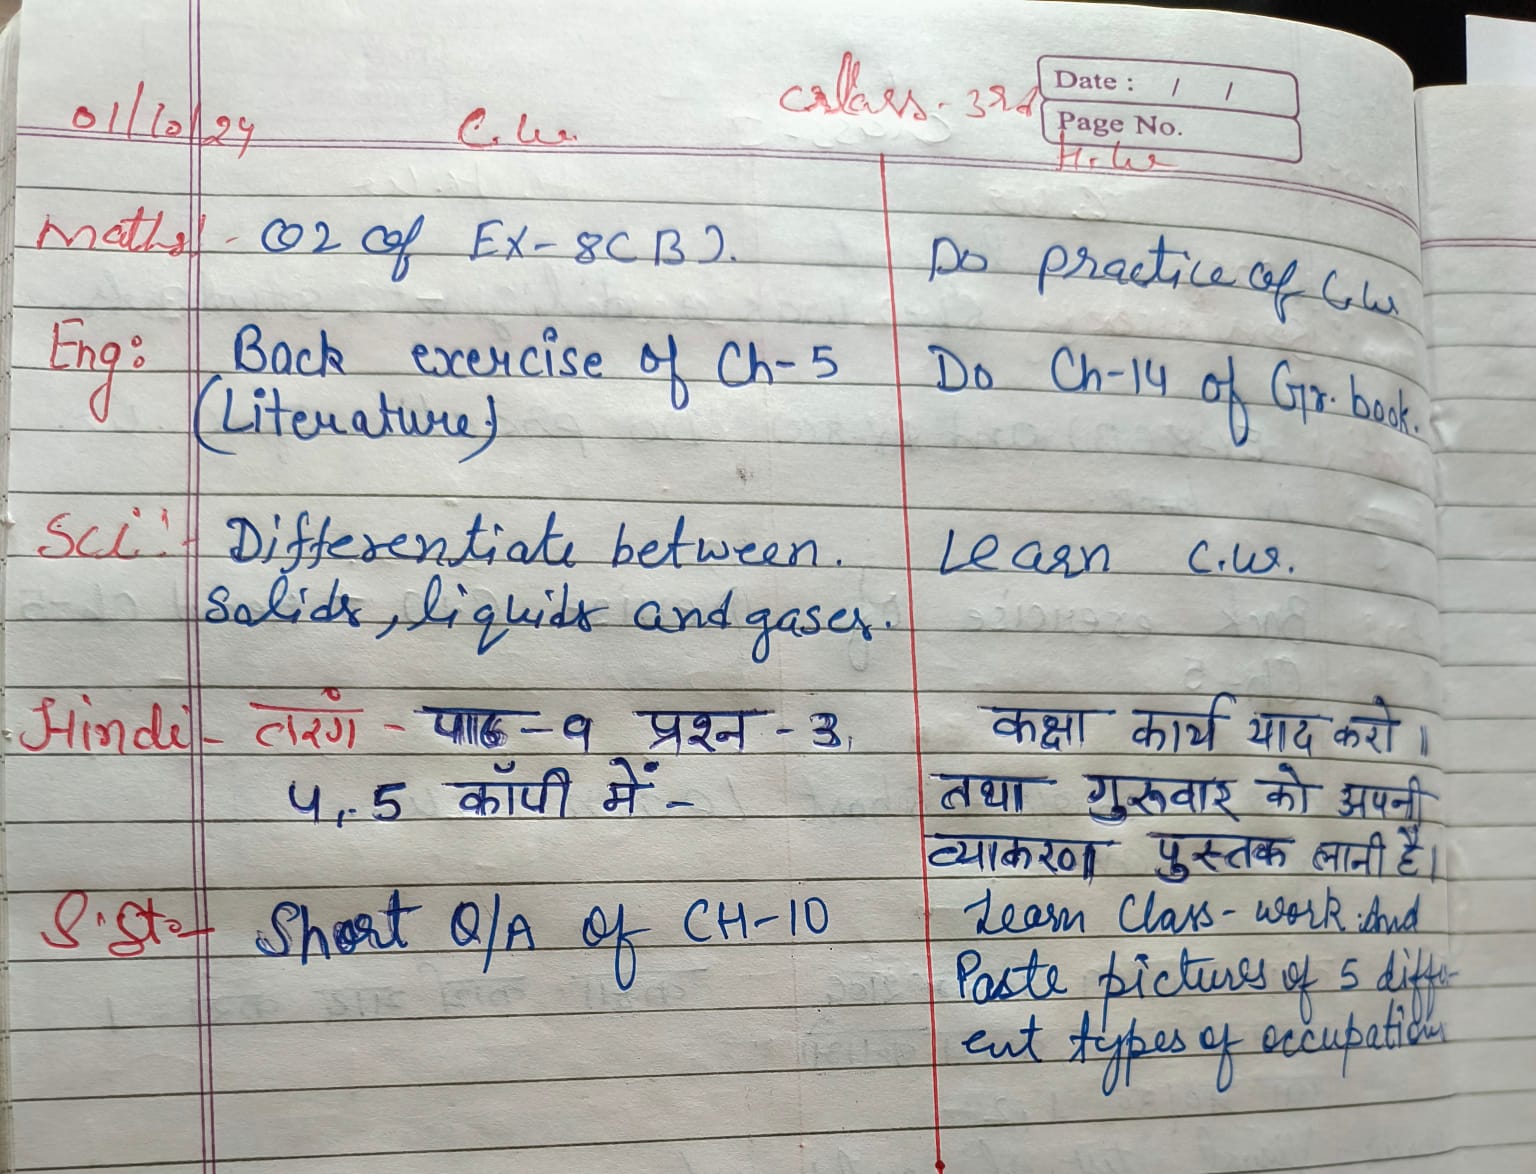 Class - 3rd
Date : / /
Page No.
01/10/24 C.W. H.W
Maths - Q2 of EX-8(B).
Do practice of C.W
Eng: Back exercise of Ch-5
(Literature)
Do Ch-14 of Gr. book.
Sci:- Differentiate between.
solids, liquids and gases.
Learn C.W.
Hindi - तरंग - पाठ - 9 प्रश्न - 3,
4, 5 कॉपी में -
कक्षा कार्य याद करो।
तथा गुरूवार को अपनी
व्याकरण पुस्तक लानी है।
S.St:- Short Q/A of CH-10
Learn Class-work And
Paste pictures of 5 differ-
ent types of occupations